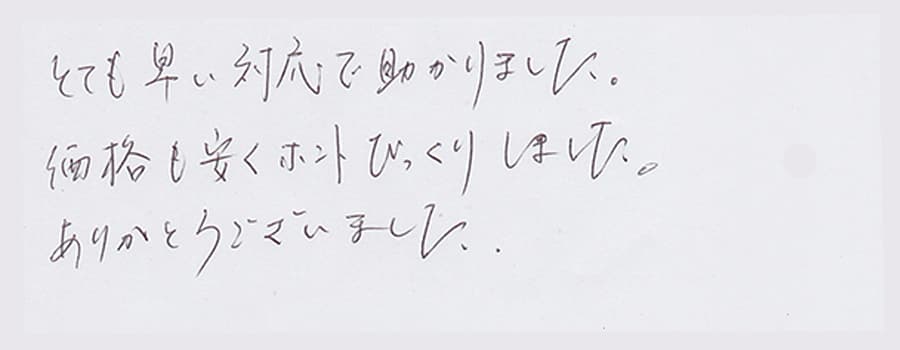 とても早い対応で助かりました。
価格も安くホントびっくりしました。
ありがとうございました。